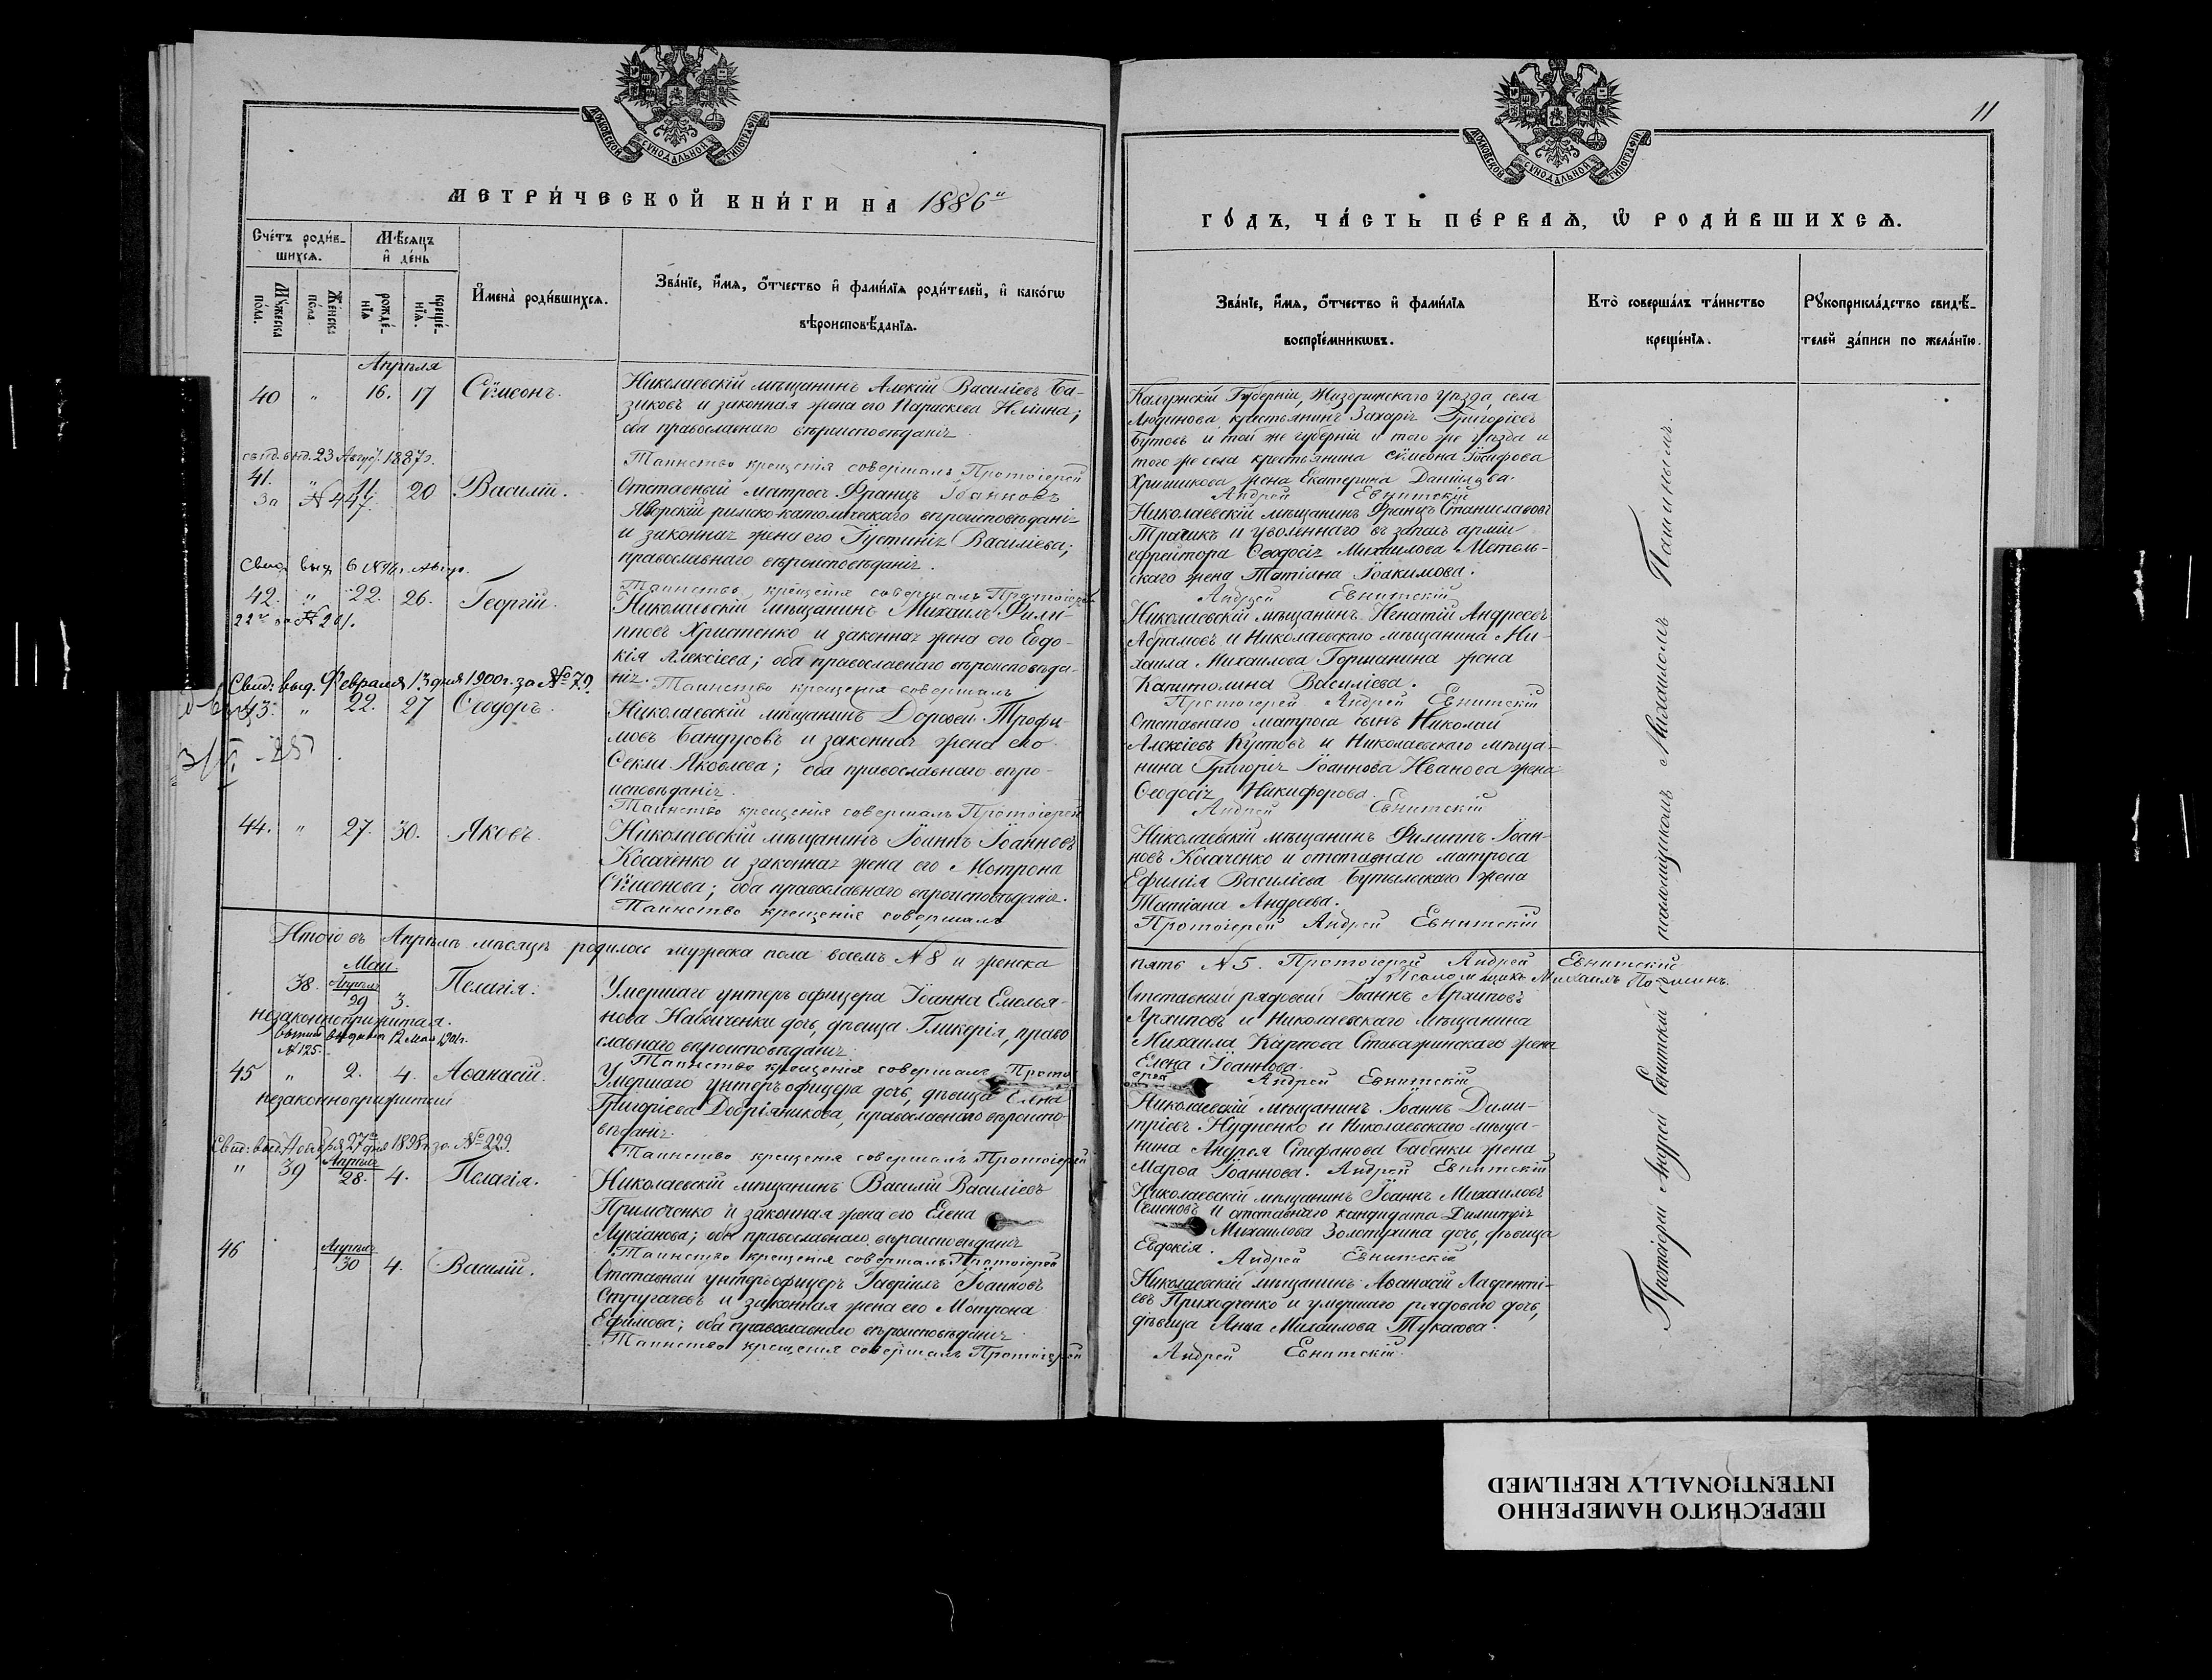 МОСКОВСКОЙ СѴНОДАЛЬНОЙ ТИПОГРАФІИ
МЕТРИ́ЧЕСКОЙ КНИ́ГИ НА 1886й
Сче́тъ роди́в-
шихсѧ.
Мѣ́сѧцъ
и҆ де́нь
Мꙋ́жеска
по́ла.
Же́нска
по́ла.
рожде́-
нїѧ
креще́-
нїѧ.
И҆мена̀ роди́вшихсѧ.
Зва́нїе, и҆́мѧ, ѻ҆́тчество и҆ фами́лїѧ роди́телей, и҆ како́гѡ
вѣроисповѣ́данїѧ.
Апрѣля
40 " 16. 17 Сѷмеонъ.
Николаевскій мѣщанинъ Алексій Василіевъ Ба-
зиковъ и законная жена его Параскева Ильина;
оба православнаго вѣроисповѣданія
Таинство крещенія совершалъ Протоіерей
свид. выд. 23 Август. 1887г.
за № 447.
41. " 20 Василій.
Отставный матросъ Францъ Іоанновъ
Яворскій римско-католическаго вѣроисповѣданія
и законная жена его Іустинія Василіева;
православнаго вѣроисповѣданія.
Таинство крещенія совершалъ Протоіерей
42. " 22. 26. Георгій.
22го за № 201.
Николаевскій мѣщанинъ Михаилъ Фили-
пповъ Христенко и законная жена его Евдо-
кія Алексіева; оба православнаго вѣроисповѣда-
нія.
Таинство крещенія совершалъ
Свид: выд. Февраля 13 дня 1900г. за № 79.
43. " 22. 27 Ѳеодоръ.
Николаевскій мѣщанинъ Дороѳей Трофи-
мовъ Бандусовъ и законная жена его
Ѳекла Яковлева; оба православнаго вѣро-
исповѣданія.
Таинство крещенія совершалъ Протоіерей
44. " 27. 30. Яковъ.
Николаевскій мѣщанинъ Іоаннъ Іоанновъ
Косаченко и законная жена его Мотрона
Сѷмеонова; оба православнаго вѣроисповѣданія.
Таинство крещенія совершалъ
Итого въ Апрѣлѣ мѣсяцѣ родилось мужеска пола восемь № 8 и женска
Май.
38. Апрѣль 29 3. Пелагія.
незаконноприжитая.
выданъ 12 Мая 1901г.
№ 125.
Умершаго унтеръ офицера Іоанна Емелья-
нова Наконечнки дочь, дѣвица Гликерія, право
славнаго вѣроисповѣданія.
Таинство крещенія совершалъ Прото
45 " 2. 4. Аѳанасій.
незаконноприжитый
Умершаго унтеръ офицера дочь, дѣвица Елена
Григоріева Добріяникова, православнаго вѣроиспо-
вѣданія.
Таинство крещенія совершалъ Протоіерей
Свид: выд. Ноября 27го дня 1898г. за № 229.
" 39 Апрѣль 28. 4. Пелагія.
Николаевскій мѣщанинъ Василій Василіевъ
Примоченко и законная жена его Елена
Лукіанова; оба православнаго вѣроисповѣданія
Таинство крещенія совершалъ Протоіерей
46 Апрѣль 30 4. Василій.
Отставный унтеръ офицеръ Гавріилъ Іоанновъ
Стругачевъ и законная жена его Мотрона
Ефимова; оба православнаго вѣроисповѣданія
Таинство крещенія совершалъ Протоіерей
11
МОСКОВСКОЙ СѴНОДАЛЬНОЙ ТИПОГРАФІИ
ГО́ДЪ, ЧА́СТЬ ПЕ́РВАѦ, Ѡ҆ РОДИ́ВШИХСѦ.
Зва́нїе, и҆́мѧ, ѻ҆́тчество и҆ фами́лїѧ
воспрїе́мникѡвъ.
Кто̀ соверша́лъ та́инство
креще́нїѧ.
Рꙋкоприкла́дство свидѣ́-
телей за́писи по жела́нїю.
Калужской Губерніи, Жиздринскаго уѣзда, села
Людинова крестьянинъ Захарія Григоріевъ
Бутовъ и той же губерніи и того же уѣзда и
того же села крестьянина Сѷмеона Іосифова
Хришикова жена Екатерина Даніилова.
Андрей Евнитскій
Николаевскій мѣщанинъ Францъ Станиславовъ
Трачикъ и уволеннаго въ запасъ арміи
ефрейтора Ѳеодосія Михаилова Метель-
скаго жена Татіана Іоакимова.
Андрей Евнитскій
Николаевскій мѣщанинъ Игнатій Андреевъ
Абрамовъ и Николаевскаго мѣщанина Ми-
хаила Михаилова Горшанина жена
Капитолина Василіева.
Протоіерей Андрей Евнитскій
Отставнаго матроса сынъ Николай
Алексіевъ Кустовъ и Николаевскаго мѣща-
нина Григорія Іоаннова Иванова жена
Ѳеодосія Никифорова.
Андрей Евнитскій
Николаевскій мѣщанинъ Филиппъ Іоан-
новъ Косаченко и отставнаго матроса
Ефимія Василіева Бутылскаго жена
Татіана Андреева.
Протоіерей Андрей Евнитскій
пять № 5. Протоіерей Андрей Евнитскій
Псаломщикъ Михаилъ Пашинъ.
Отставный рядовой Іоаннъ Архиповъ
Архиповъ и Николаевскаго мѣщанина
Михаила Карпова Ставажинскаго жена
Елена Іоаннова.
ерей Андрей Евнитскій
Николаевскій мѣщанинъ Іоаннъ Дими-
тріевъ Нудненко и Николаевскаго мѣща-
нина Андрея Стефанова Бабенки жена
Марѳа Іоаннова. Андрей Евнитскій
Николаевскій мѣщанинъ Іоаннъ Михаиловъ
Семеновъ и отставнаго кандидата Димитрія
Михаилова Золотухина дочь, дѣвица
Евдокія. Андрей Евнитскій
Николаевскій мѣщанинъ Аѳанасій Лаврентi-
евъ Приходченко и умершаго рядоваго дочь,
дѣвица Анна Михаилова Тукасова.
Андрей Евнитскій.
Протоіерей Андрей Евнитскій съ псаломщикомъ Михаиломъ Пашинымъ.
ПЕРЕСНЯТО НАМЕРЕННО
INTENTIONALLY REFILMED